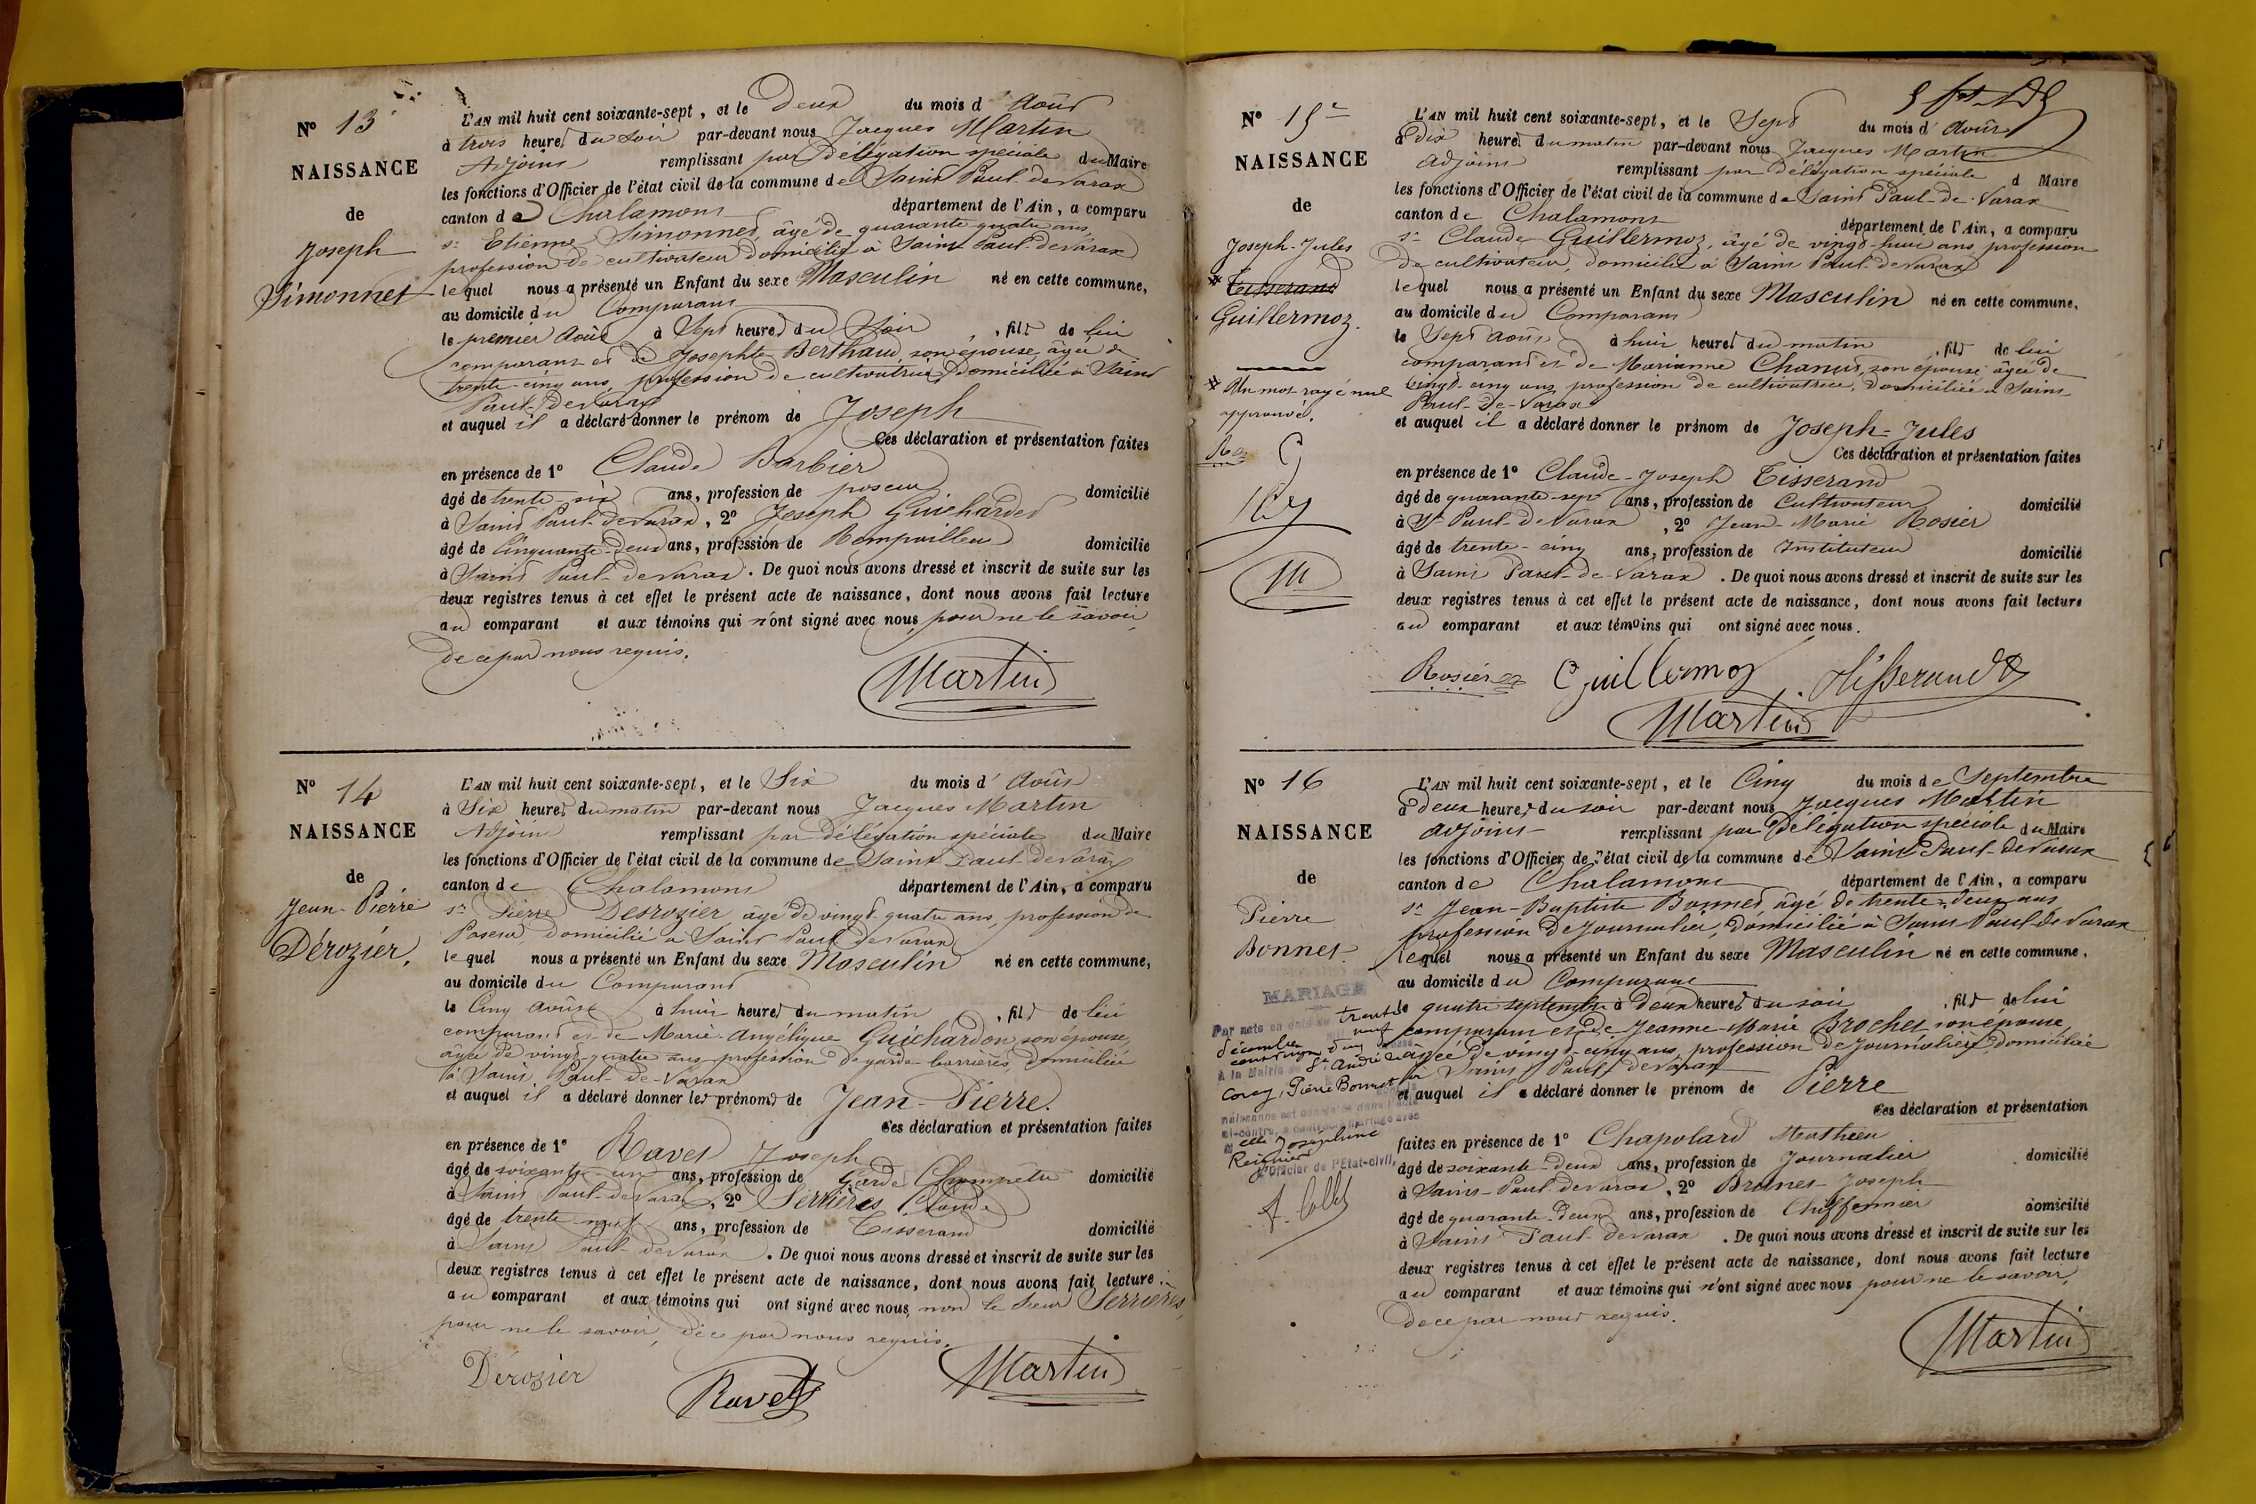 Nº 13
NAISSANCE
de
Joseph
Simonnet
L'AN mil huit cent soixante-sept, et le Deux du mois d' Août
à trois heures du soir par-devant nous Jacques Martin
Adjoint remplissant par délégation spéciale du Maire
les fonctions d'Officier de l'état civil de la commune de Saint Paul-de Varax
canton de Chalamont département de l'Ain, a comparu
sr Etienne Simonnet, âgé de quarante quatre ans,
profession de cultivateur domicilié à Saint Paul-de Varax
lequel nous a présenté un Enfant du sexe Masculin né en cette commune,
au domicile du Comparant
le premier Août à Sept heures du Soir, fils de lui
comparant et de Josephte Berthaud, son épouse, âgée de
trente-cinq ans, profession de cultivatrice, domiciliée à Saint
Paul-de Varax
et auquel il a déclaré donner le prénom de Joseph
Ces déclaration et présentation faites
en présence de 1º Claude Barbier
âgé de trente-six ans, profession de poseur domicilié
à Saint Paul-de Varax, 2º Joseph Guichardet
âgé de Cinquante-deux ans, profession de Rempailleur domicilié
à Saint Paul-de Varax. De quoi nous avons dressé et inscrit de suite sur les
deux registres tenus à cet effet le présent acte de naissance, dont nous avons fait lecture
au comparant et aux témoins qui n'ont signé avec nous, pour ne le savoir,
de ce par nous requis.
Martin
Nº 14
NAISSANCE
de
Jean-Pierre
Dérozier.
L'AN mil huit cent soixante-sept, et le Six du mois d' Août
à Six heures du matin par-devant nous Jacques Martin
Adjoint remplissant par délégation spéciale du Maire
les fonctions d'Officier de l'état civil de la commune de Saint Paul-de Varax
canton de Chalamont département de l'Ain, a comparu
sr Pierre Desrozier, âgé de vingt-quatre ans, profession de
Poseur, domicilié à Saint Paul de Varax
lequel nous a présenté un Enfant du sexe Masculin né en cette commune,
au domicile du Comparant
le Cinq août à huit heures du matin, fils de lui
comparant et de Marie-Angélique Guichardon, son épouse,
âgée de vingt-quatre ans, profession de garde-barrières, domiciliée
à Saint Paul-de-Varax
et auquel il a déclaré donner les prénoms de Jean-Pierre.
Ces déclaration et présentation faites
en présence de 1º Ravet Joseph
âgé de soixante-un ans, profession de Garde Champêtre domicilié
à Saint Paul-de Varax, 2º Serrières Claude
âgé de trente-neuf ans, profession de Tisserand domicilié
à Saint Paul-de Varax. De quoi nous avons dressé et inscrit de suite sur les
deux registres tenus à cet effet le présent acte de naissance, dont nous avons fait lecture
au comparant et aux témoins qui ont signé avec nous, non le sieur Serrières,
pour ne le savoir, de ce par nous requis.
Dérozier Ravet Martin
Nº 15
NAISSANCE
de
Joseph-Jules
Tisserand
Guillermoz.
Un mot rayé nul
approuvé.
L'AN mil huit cent soixante-sept, et le Sept du mois d' Août
à dix heures du matin par-devant nous Jacques Martin
Adjoint remplissant par délégation spéciale d Maire
les fonctions d'Officier de l'état civil de la commune de Saint Paul-de-Varax
canton de Chalamont département de l'Ain, a comparu
sr Claude Guillermoz, âgé de vingt-huit ans, profession
de cultivateur, domicilié à Saint Paul-de Varax
lequel nous a présenté un Enfant du sexe Masculin né en cette commune,
au domicile du Comparant
le Sept août à huit heures du matin, fils de lui
comparant et de Marianne Chanut, son épouse âgée de
vingt-cinq ans, profession de cultivatrice, domiciliée à Saint
Paul-de-Varax
et auquel il a déclaré donner le prénom de Joseph-Jules
Ces déclaration et présentation faites
en présence de 1º Claude-Joseph Tisserand
âgé de quarante-sept ans, profession de Cultivateur domicilié
à St Paul-de Varax, 2º Jean-Marie Rosier
âgé de trente-cinq ans, profession de Instituteur domicilié
à Saint Paul-de-Varax. De quoi nous avons dressé et inscrit de suite sur les
deux registres tenus à cet effet le présent acte de naissance, dont nous avons fait lecture
au comparant et aux témoins qui ont signé avec nous.
Rosier Guillermoz Tisserand
Martin
Nº 16
NAISSANCE
de
Pierre
Bonnet
MARIAGE
L'AN mil huit cent soixante-sept, et le Cinq du mois de Septembre
à deux heures du soir par-devant nous Jacques Martin
adjoint remplissant par délégation spéciale du Maire
les fonctions d'Officier de l'état civil de la commune de Saint Paul-de Varax
canton de Chalamont département de l'Ain, a comparu
sr Jean-Baptiste Bonnet âgé de trente-deux ans
profession de Journalier, domicilié à Saint Paul-de Varax
lequel nous a présenté un Enfant du sexe Masculin né en cette commune,
au domicile du Comparant
le quatre septembre à deux heures du soir, fils de lui
comparant et de Jeanne-Marie Brochet son épouse,
âgée de vingt-cinq ans, profession de Journalière, domiciliée
à Saint Paul de Varax
et auquel il a déclaré donner le prénom de Pierre
Ces déclaration et présentation
faites en présence de 1º Chapolard Mathieu
âgé de soixante-deux ans, profession de Journalier domicilié
à Saint-Paul de Varax, 2º Brunet Joseph
âgé de quarante-deux ans, profession de Chiffonnier domicilié
à Saint Paul de Varax. De quoi nous avons dressé et inscrit de suite sur les
deux registres tenus à cet effet le présent acte de naissance, dont nous avons fait lecture
au comparant et aux témoins qui n'ont signé avec nous pour ne le savoir,
de ce par nous requis.
Martin